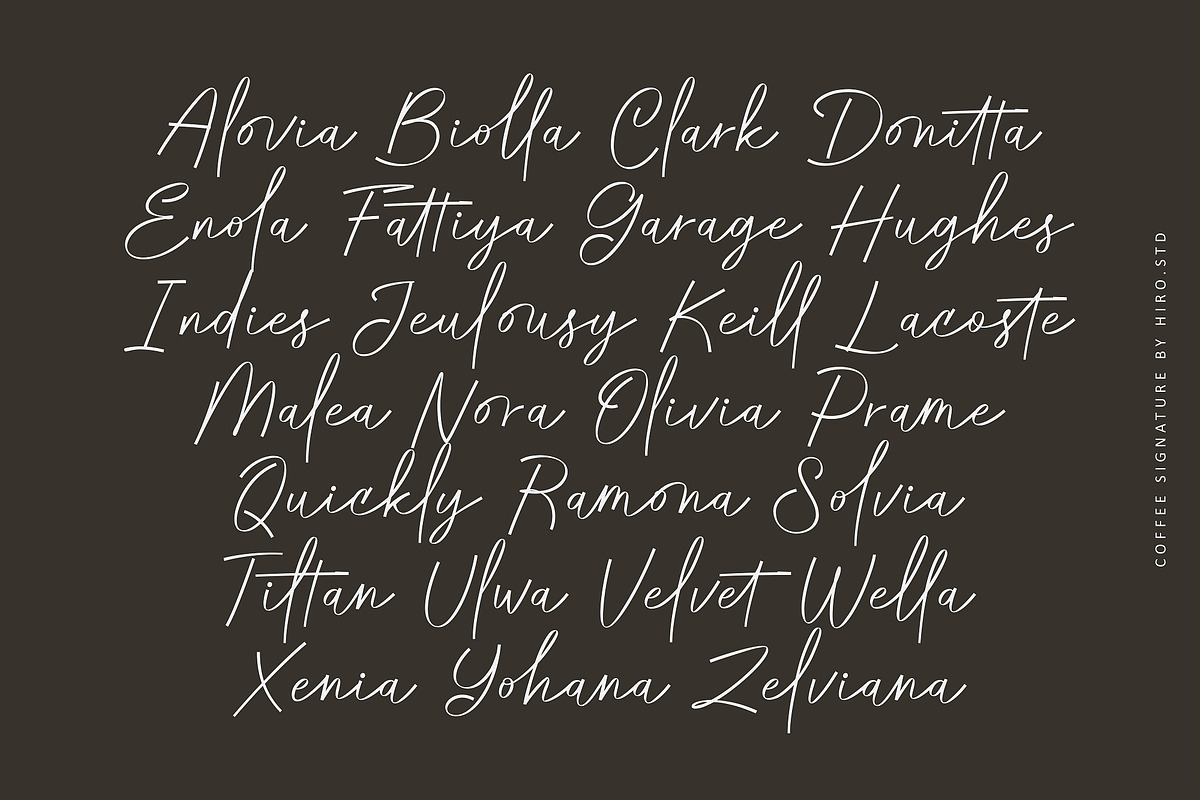 Alovia Biolla Clark Donitta
Enola Fattiya Garage Hughes
Indies Jeulousy Keill Lacoste
Malea Nora Olivia Prame
Quickly Ramona Solvia
Tiltan Ulwa Velvet Wella
Xenia Yohana Zelviana
COFFEE SIGNATURE BY HIRO.STD